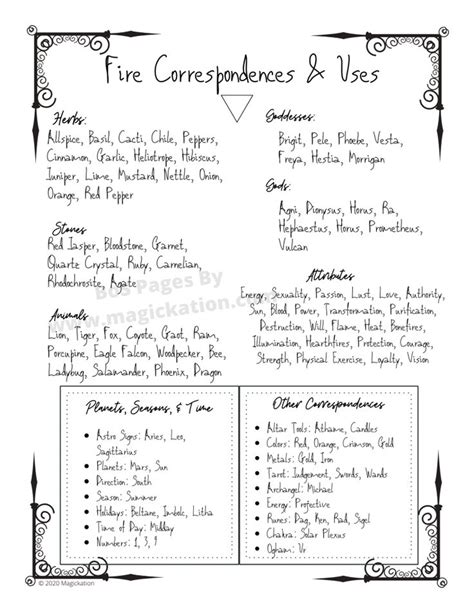 Fire Correspondences & Uses
Herbs:
Allspice, Basil, Cacti, Chile, Peppers,
Cinnamon, Garlic, Heliotrope, Hibiscus,
Juniper, Lime, Mustard, Nettle, Onion,
Orange, Red Pepper
Stones
Red Jasper, Bloodstone, Garnet,
Quartz Crystal, Ruby, Carnelian,
Rhodochrosite, Agate
Animals
Lion, Tiger, Fox, Coyote, Gaot, Ram,
Porcupine, Eagle Falcon, Woodpecker, Bee,
Ladybug, Salamander, Phoenix, Dragon
Goddesses:
Brigit, Pele, Phoebe, Vesta,
Freya, Hestia, Morrigan
Gods:
Agni, Dionysus, Horus, Ra,
Hephaestus, Horus, Prometheus,
Vulcan
Attributes
Energy, Sexuality, Passion, Lust, Love, Authority,
Sun, Blood, Power, Transformation, Purification,
Destruction, Will, Flame, Heat, Bonefires,
Illumination, Hearthfires, Protection, Courage,
Strength, Physical Exercise, Loyalty, Vision
BoS Pages By
www.magickation.com
Planets, Seasons, & Time
• Astro Signs: Aries, Leo,
Sagittarius
• Planets: Mars, Sun
• Direction: South
• Season: Summer
• Holidays: Beltane, Imbolc, Litha
• Time of Day: Midday
• Numbers: 1, 3, 9
Other Correspondences
• Altar Tools: Athame, Candles
• Colors: Red, Orange, Crimson, Gold
• Metals: Gold, Iron
• Tarot: Judgement, Swords, Wands
• Archangel: Michael
• Energy: Projective
• Runes: Dag, Ken, Rad, Sigel
• Chakra: Solar Plexus
• Ogham: Ur
© 2020 Magickation